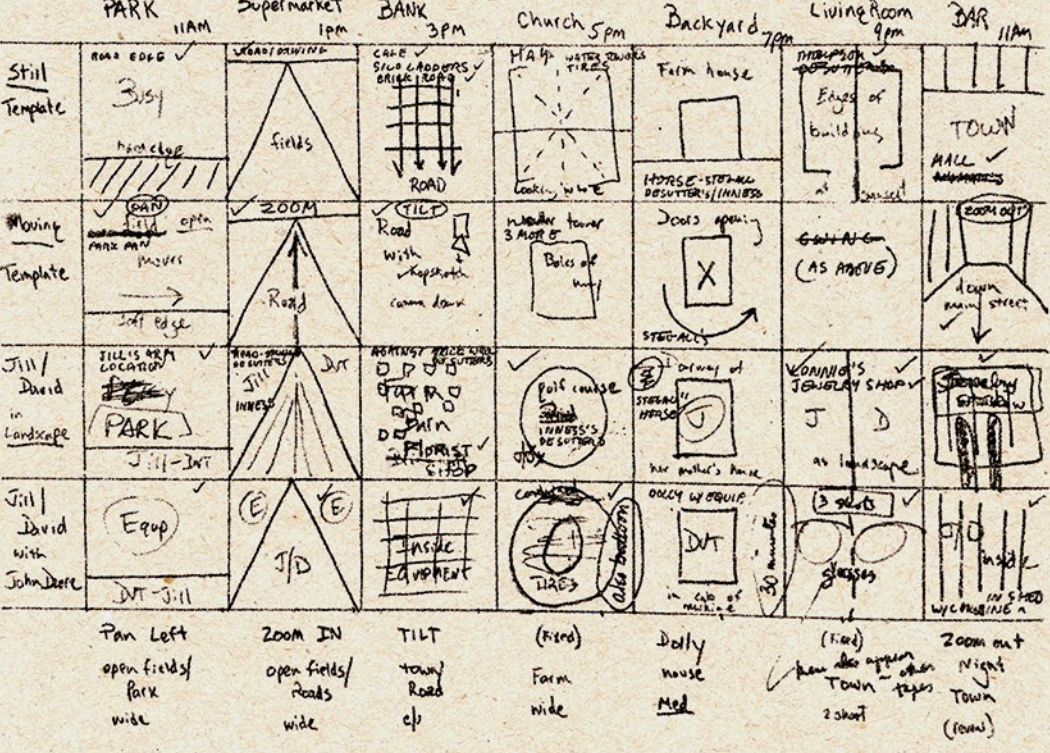 PARK
11AM
Supermarket
1pm
BANK
3PM
Church
5pm
Backyard
7pm
Living Room
9pm
BAR
11AM
Still
Template
ROAD EDGE
Busy
fields
SILO LADDERS
BRICK ROAD
ROAD
WATER TOWERS
TIRES
Farm house
HORSE-STEGALL
DESUTTER'S/INNESS
Edges of
buildings
at
sunset
TOWN
HALL
Moving
Template
PAN
field
open
PARK PAN
moves
soft edge
ZOOM
Road
TILT
Road
with
camera down
water tower
3 MORE
Bales of
hay
Doors opening
X
STEGALL'S
(AS ABOVE)
ZOOM OUT
down
main street
Jill/
David
in
Landscape
JILL'S ARM
LOCATION
PARK
Jill-DVT
Jill
DVT
INNESS
AGAINST
FLORIST
SHOP
Golf course
INNESS'S
DESUTTER'S
Doorway of
STEGALL'S
HORSE
J
her mother's house
CONNIE'S
JEWELRY SHOP
J
D
as landscape
Jewelry
Jill/
David
with
John Deere
Equp
DVT-Jill
E
E
J/D
Inside
EQUIPMENT
TIRES
also bottom
DOLLY W/ EQUIP.
DVT
in cab of
machine
30 minutes
3 shots
glasses
J/D
inside
IN SHED
W/COMBINE
Pan Left
open fields/
Park
wide
ZOOM IN
open fields/
Roads
wide
TILT
town/
Road
c/u
(Fixed)
Farm
wide
Dolly
house
Med
(Fixed)
here also appear
Town - other
tapes
2 shot
Zoom out
Night
Town